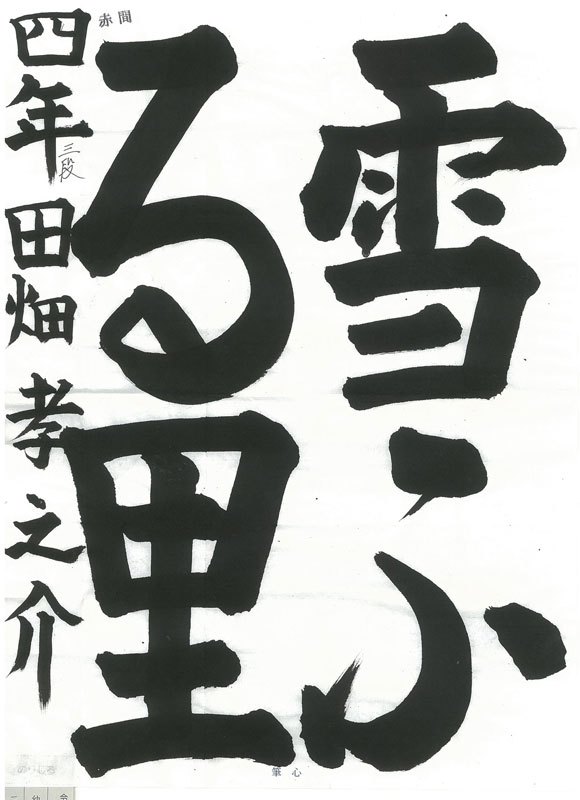 雪ふ
る里
四年 三段 田畑 孝之介
赤間
筆心